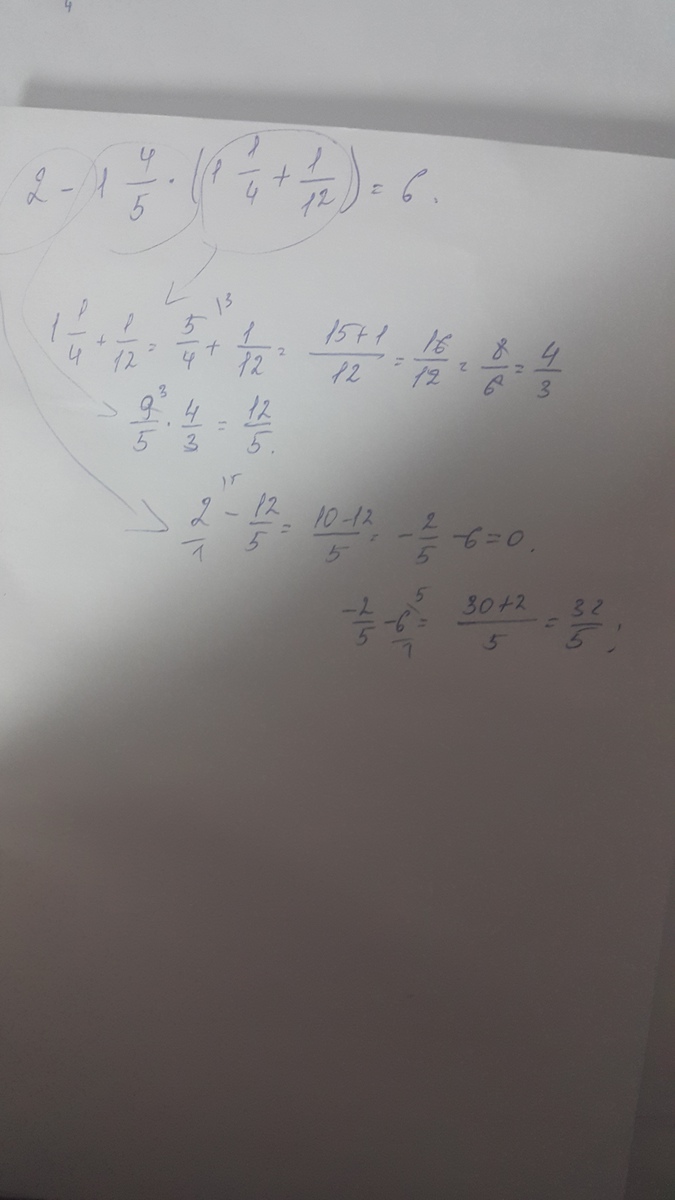 4
2 - 1 4/5 · (1 1/4 + 1/12) = 6.
1 1/4 + 1/12 = 5/4 \3 + 1/12 = 15+1/12 = 16/12 = 8/6 = 4/3
9/5 3 · 4/3 = 12/5.
2/1 \5 - 12/5 = 10-12/5 = -2/5 -6=0.
-2/5 -6/1 \5 = 30+2/5 = 32/5;